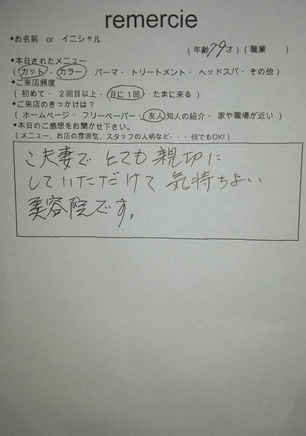 remercie
*お名前 or イニシャル
(年齢79才)(職業 )
*本日されたメニュー
(カット・カラー パーマ・トリートメント・ヘッドスパ・その他)
*ご来店頻度
(初めて・2回目以上・月に1回 たまに来る)
*ご来店のきっかけは？
(ホームページ・フリーペーパー・友人知人の紹介・家や職場が近い)
*本日のご感想をお聞かせ下さい。
(メニュー、お店の雰囲気、スタッフの人柄など・・何でもOK!)
ご夫妻でとても親切に
していただけて気持ちよい
美容院です。